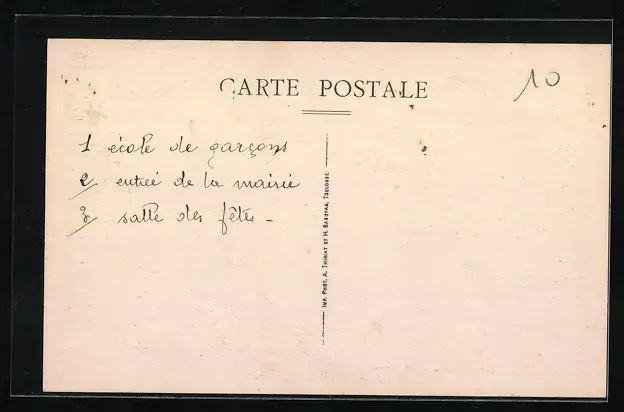 CARTE POSTALE
10
1 école de garçons
2/ entreé de la mairie
3/ salle des fêtes -
IMP. PHOT. A. THIRIAT ET H. BASUYAU, TOULOUSE.